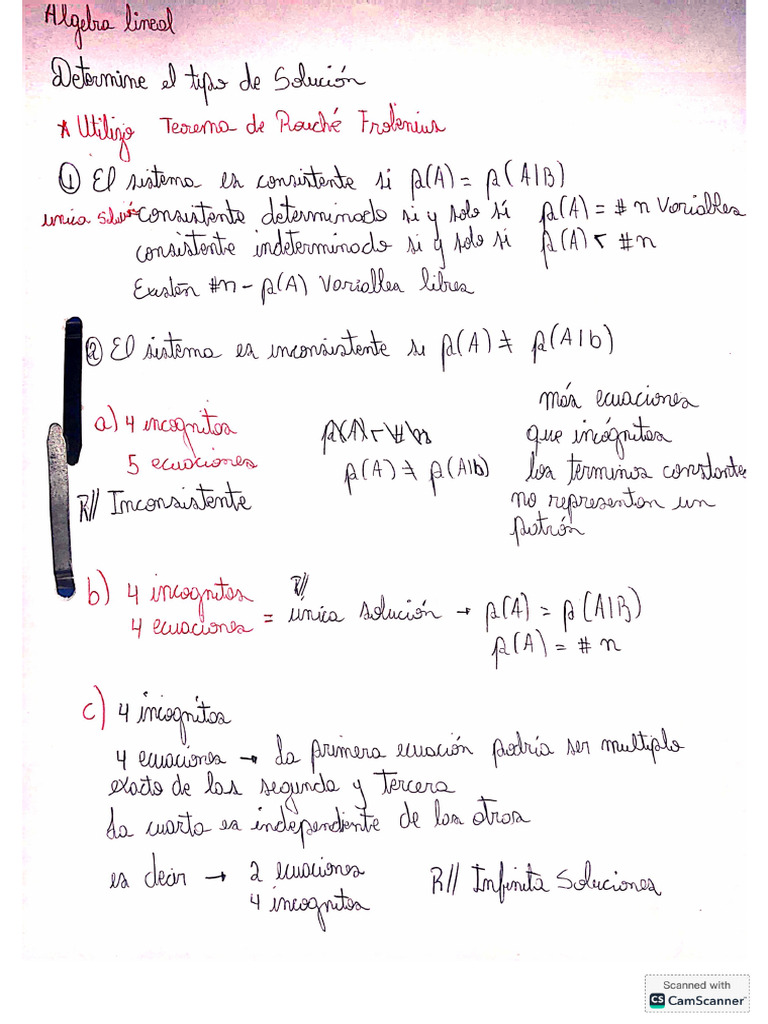 Algebra lineal
Determine el tipo de Solución
* Utilizo Teorema de Rouché Frobenius
① El sistema es consistente si ρ(A) = ρ(A|B)
unica Solución consistente determinado si y solo si ρ(A) = # n Variables
consistente indeterminado si y solo si ρ(A) < #n
Existen #n - ρ(A) Variables libres
② El sistema es inconsistente si ρ(A) ≠ ρ(A|b)
a) 4 incognitas
5 ecuaciones
R// Inconsistente
ρ(A) < # n
ρ(A) ≠ ρ(A|b)
más ecuaciones
que incógnitas
los terminos constante
no representan un
patrón
b) 4 incognitas
4 ecuaciones = R// única solución → ρ(A) = ρ(A|B)
ρ(A) = # n
c) 4 incognitas
4 ecuaciones → La primera ecuación podría ser multiplo
exacto de las segunda y tercera
La cuarta es independiente de las otras
es decir → 2 ecuaciones
4 incognitas
R// Infinita Soluciones
Scanned with
CS CamScanner